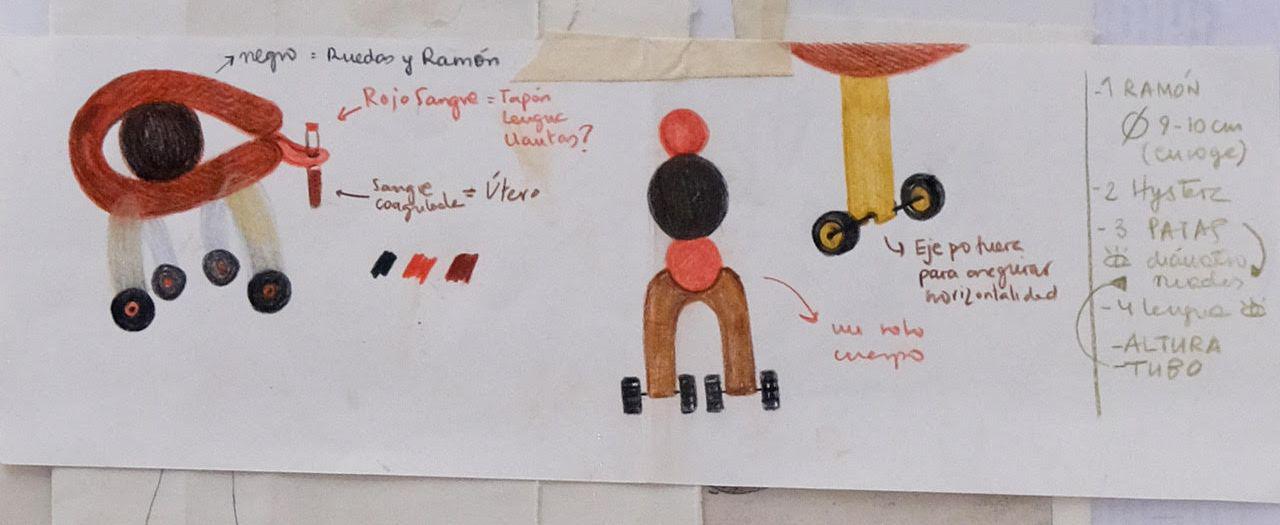 negro = Ruedas y Ramón
Rojo Sangre = Tapón
Lengua
Llantas?
Sangre
coagulada = Útero
Eje por fuera
para asegurar
horizontalidad
un solo
cuerpo
-1 RAMÓN
Ø 9-10 cm
(encoge)
-2 Hyster
-3 PATAS
diámetro
ruedas
-4 lengua
-ALTURA
-TUBO